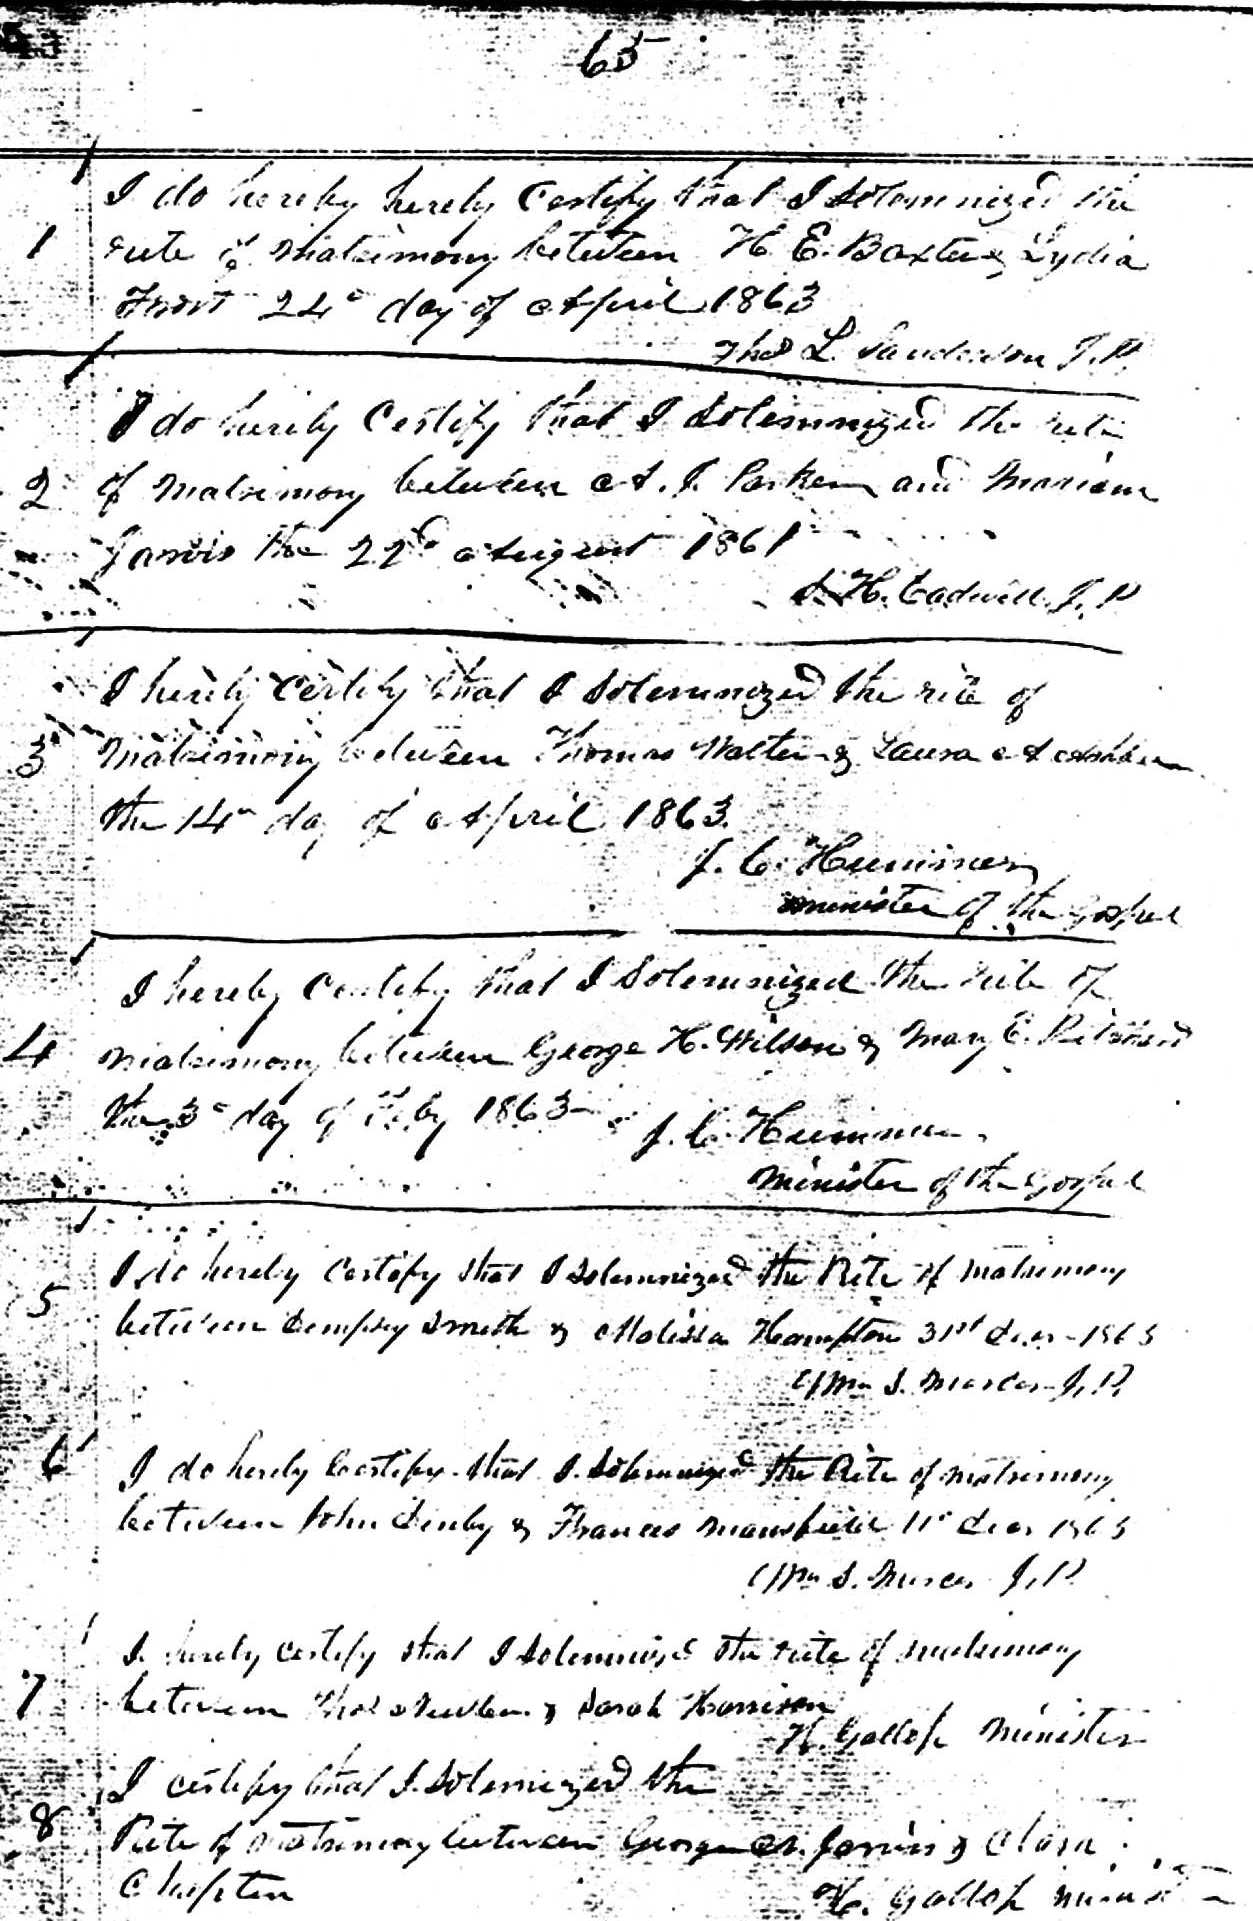 65
I do hereby hereby Certify that I Solemnized the
1 rite of matrimony between H E. Baxter & Lydia
Frost 24 day of April 1863
Thos L. Sanderson J.P.
I do hereby Certify that I Solemnized the rite
2 of matrimony between A. J. Parker and Mariam
Jarvis the 22d August 1861
H. Cadwell J. P
I hereby Certify that I Solemnized the rite of
3 matrimony between Thomas Walter & Laura A
the 14 day of April 1863.
J. C. Hummer
minister of the Gospel
I hereby Certify that I Solemnized the rite of
4 matrimony between George H. Wilson & Mary E.
the 3d day of Feby 1863
J. C. Hummer
minister of the Gospel
I do hereby Certify that I Solemnized the Rite of matrimony
5 between Dempsey Smith & Malissa Hampton 31st 1863
Wm S. Mercer J.P.
6 I do hereby Certify that I Solemnized the Rite of matrimony
between John Denby & Frances Mansfield 11 1863
Wm S. Mercer J.P.
I hereby certify that I Solemnized the rite of matrimony
7 between Thos & Sarah Harrison
H. Gallop Minister
I certify that I Solemnized the
8 Rite of Matrimony between George Jarvis & Clara
H. Gallop minister